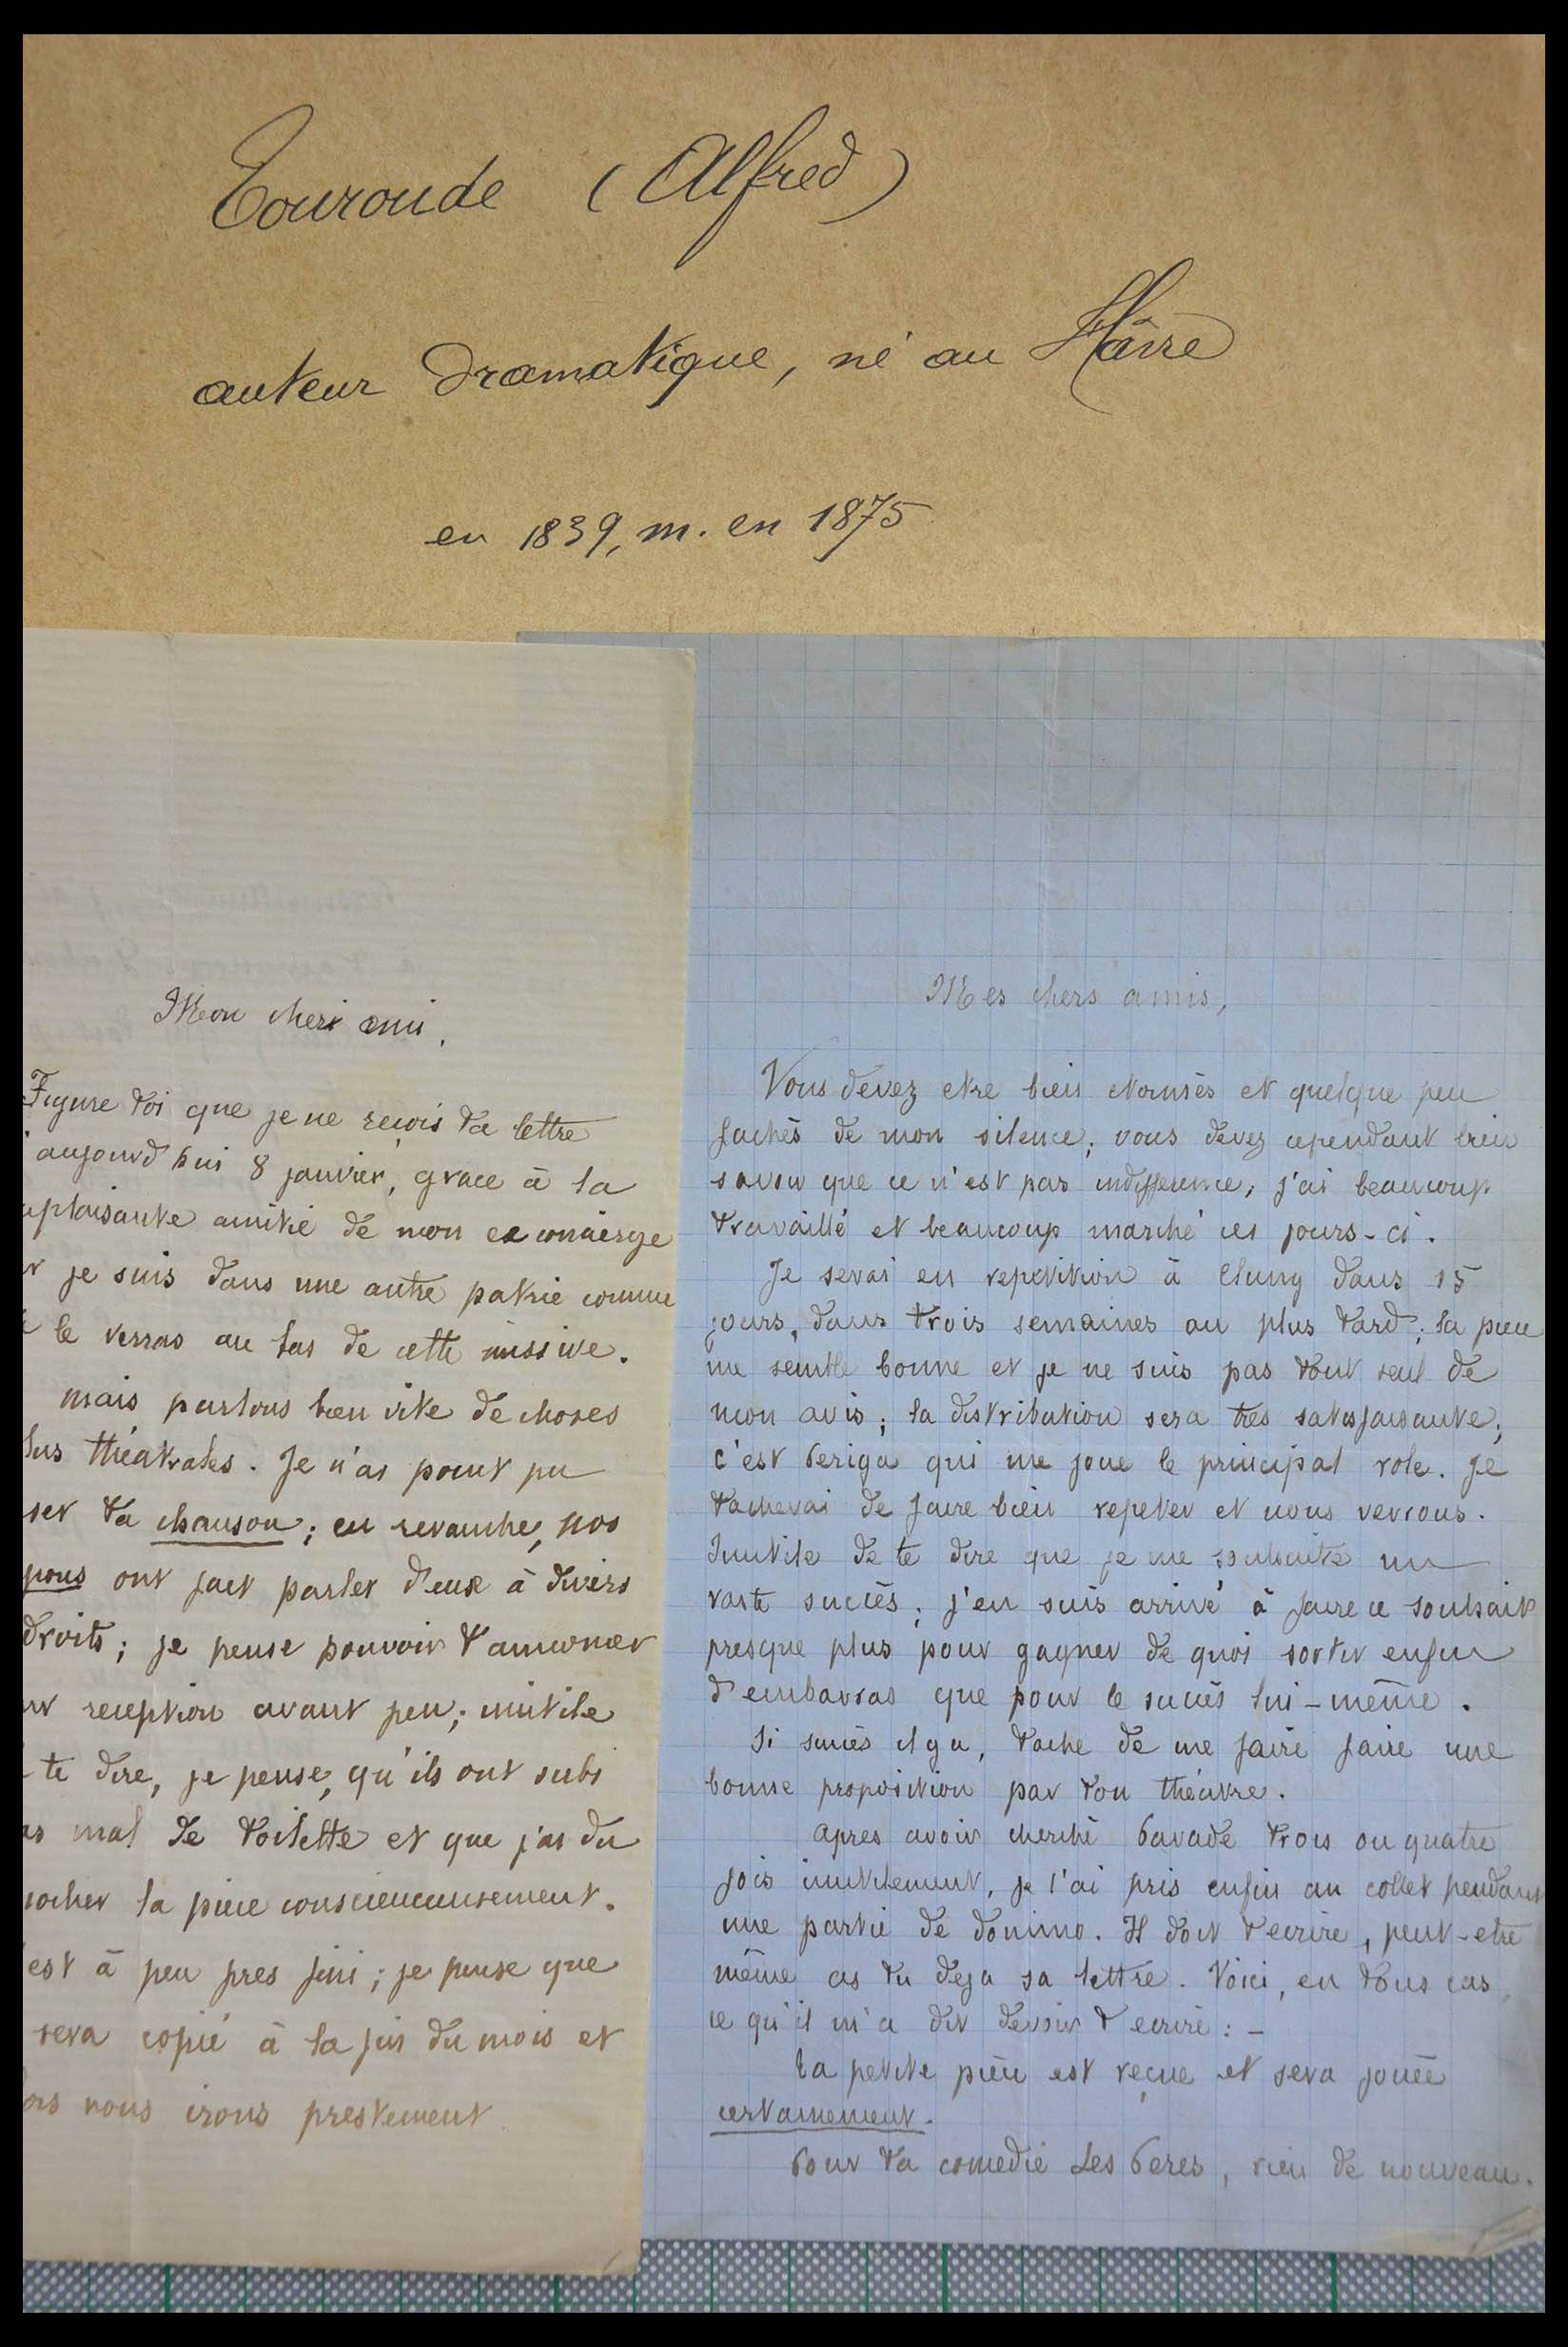 Touroude (Alfred)
auteur dramatique, né au Hâvre
en 1839, m. en 1875
Mon cher ami,
Figure toi que je ne reçois ta lettre
aujourd'hui 8 janvier, grace à la
plaisante amitié de mon ex concierge
je suis dans une autre patrie comme
le verras au bas de cette missive.
mais parlons bien vite de choses
théatrales. Je n'ai point pu
ta chanson; en revanche, nos
ont fait parler d'eux à divers
droits; je pense pouvoir t'annoncer
reception avant peu; inutile
te dire, je pense, qu'ils ont subi
mal de toilette et que j'ai du
la pièce consciencieusement.
est à peu pres fini; je pense que
sera copié à la fin du mois et
nous irons prestement
Mes chers amis,
Vous devez etre bien etonnés et quelque peu
fachés de mon silence; vous devez cependant bien
savoir que ce n'est pas indifference; j'ai beaucoup
travaillé et beaucoup marché ces jours-ci.
Je serai en repetition à Cluny dans 15
jours, dans trois semaines au plus tard; la piece
me semble bonne et je ne suis pas tout seul de
mon avis; la distribution sera très satisfaisante;
c'est Periga qui me joue le principal role. Je
tacherai de faire bien repeter et nous verrons.
Inutile de te dire que je me souhaite un
vaste succès; j'en suis arrivé à faire ce souhait
presque plus pour gagner de quoi sortir enfin
d'embarras que pour le succès lui-même.
Si succès il y a, tache de me faire faire une
bonne proposition par ton théatre.
Apres avoir cherché Parade trois ou quatre
fois inutilement, je l'ai pris enfin au collet pendant
une partie de domino. Il doit t'ecrire, peut-etre
même as tu deja sa lettre. Voici, en tous cas,
ce qu'il m'a dit devoir t'ecrire: -
Ta petite pièce est reçue et sera jouée
certainement.
Pour ta comedie Les Peres, rien de nouveau.